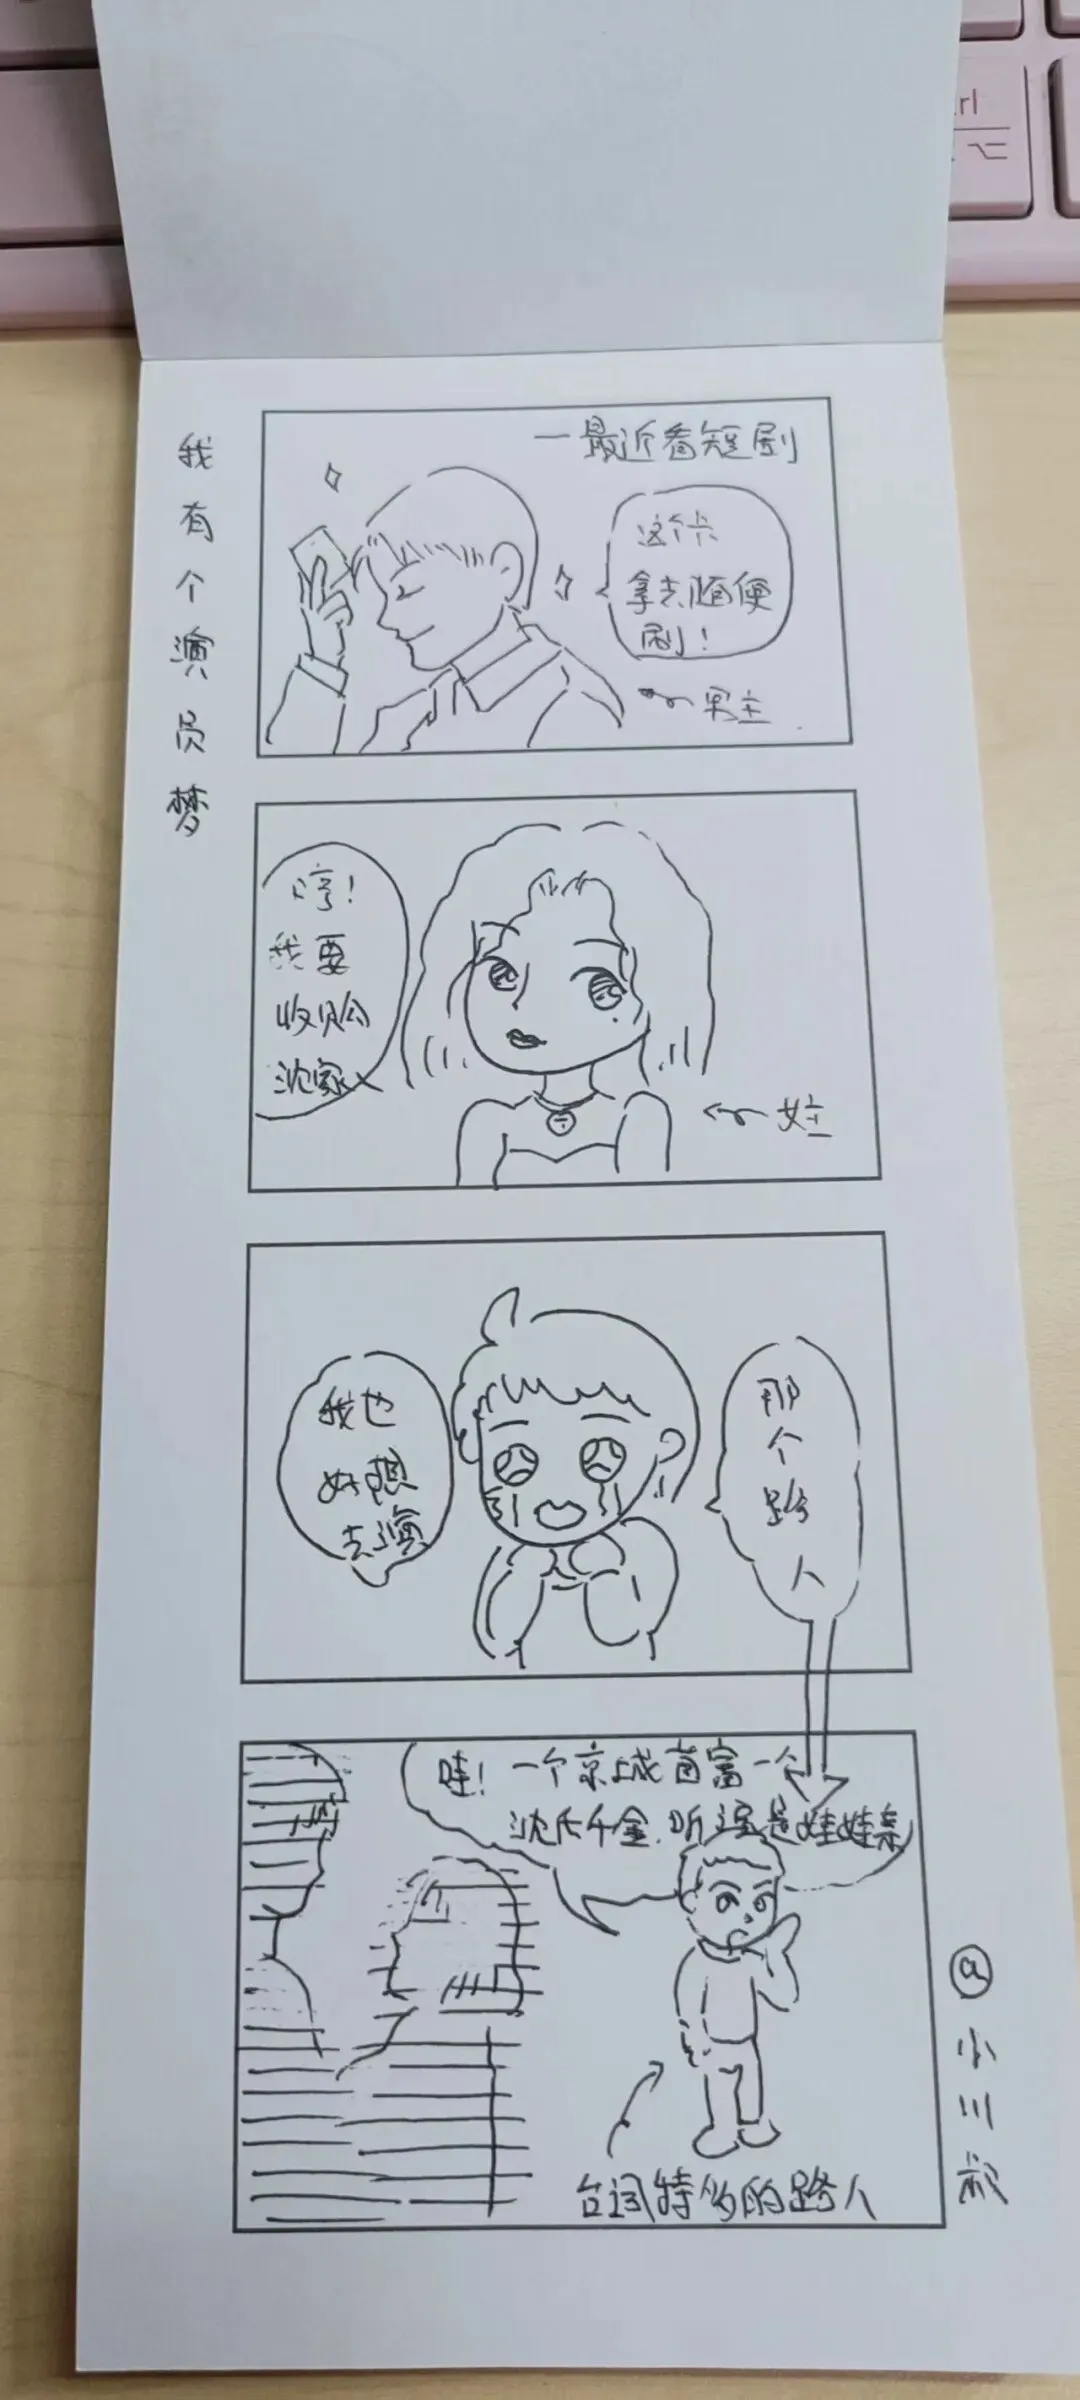 我有个演员梦
一最近看短剧
这个卡
拿去随便
刷!
男主
哼!
我要
收购
沈家
女主
我也
好想
去演
那个路人
哇!一个京城首富一个
沈氏千金.听说是娃娃亲
台词特多的路人
@小川
rl